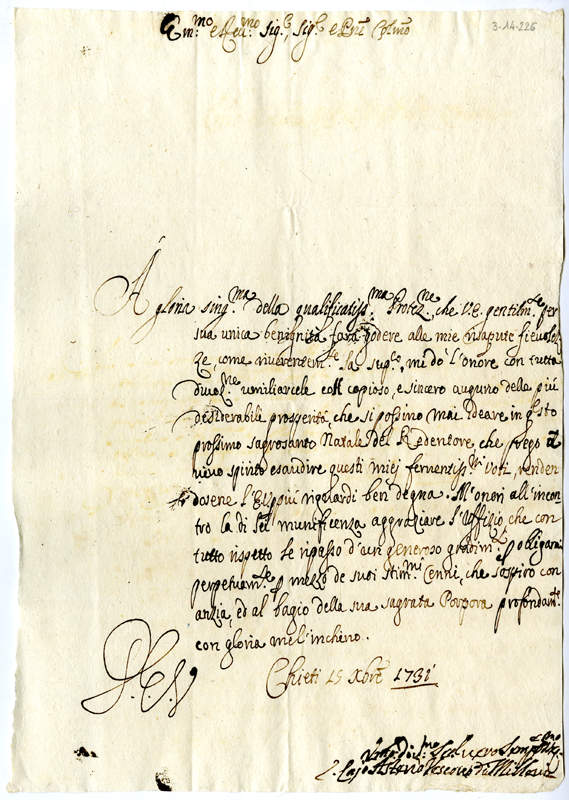 3-14-226
Em.mo e Re.mo Sig.e, Sig.e e Pne Colmo
A gloria sing.ma della qualificatiss.ma Protez.ne che V.E. gentilm.te per
sua unica benignità farà godere alle mie risapute fievolez
ze, come riverentem.te la sup.co, mi dò l'onore con tutta
divoz.ne umiliarcele coll copioso, e sincero augurio delle più
desiderabili prosperità, che si possino mai ideare in q.sto
prossimo sagrosanto Natale del Redentore, che prego à
vivo spirito esaudire questi miei ferventiss.mi Voti, renden
dosene l'E.V. più riguardi ben degna. M'onori all'incon
tro la di Lei munificenza aggraziare l'Uffizio, che con
tutto rispetto le ripasso d'un generoso gradim.to p obligarmi
perpetuam.te p mezzo de suoi stim.mi Cenni, che sospiro con
anzia, ed al bagio della sua sagrata Porpora profondam.te
con gloria me l'inchino.
D. E. V.
Chieti 15 Xbre 1731
Vmo Div.mo Serv.